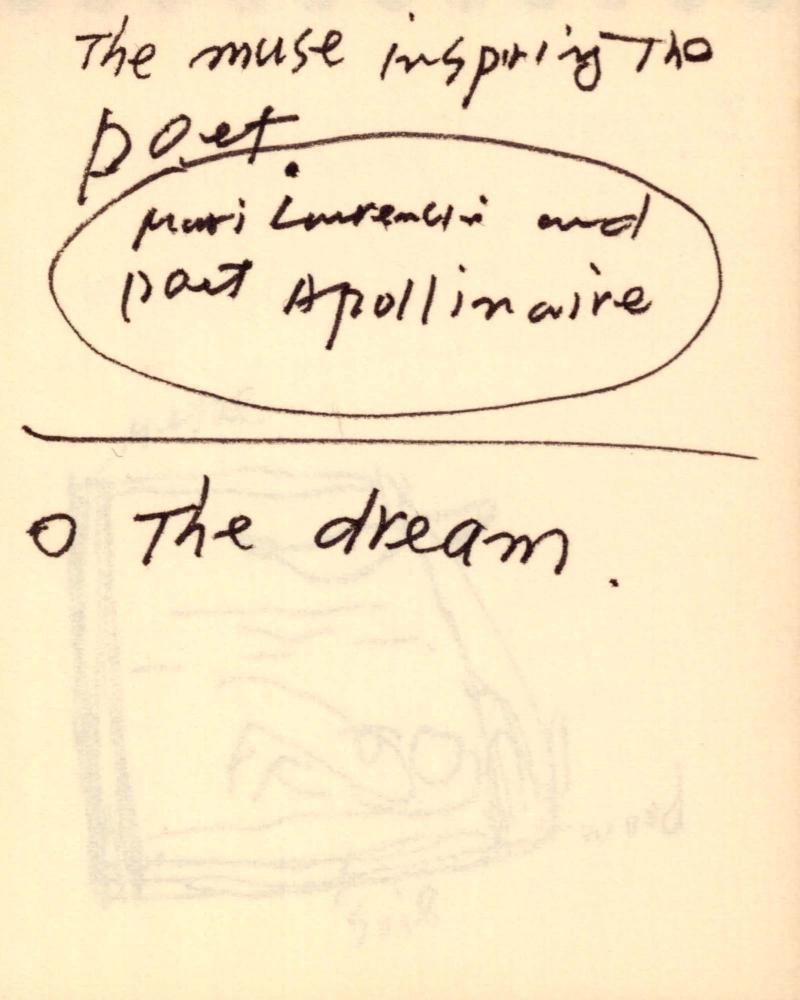 The muse inspiring The
poet.
Mari Laurencin and
poet Apollinaire
o The dream.